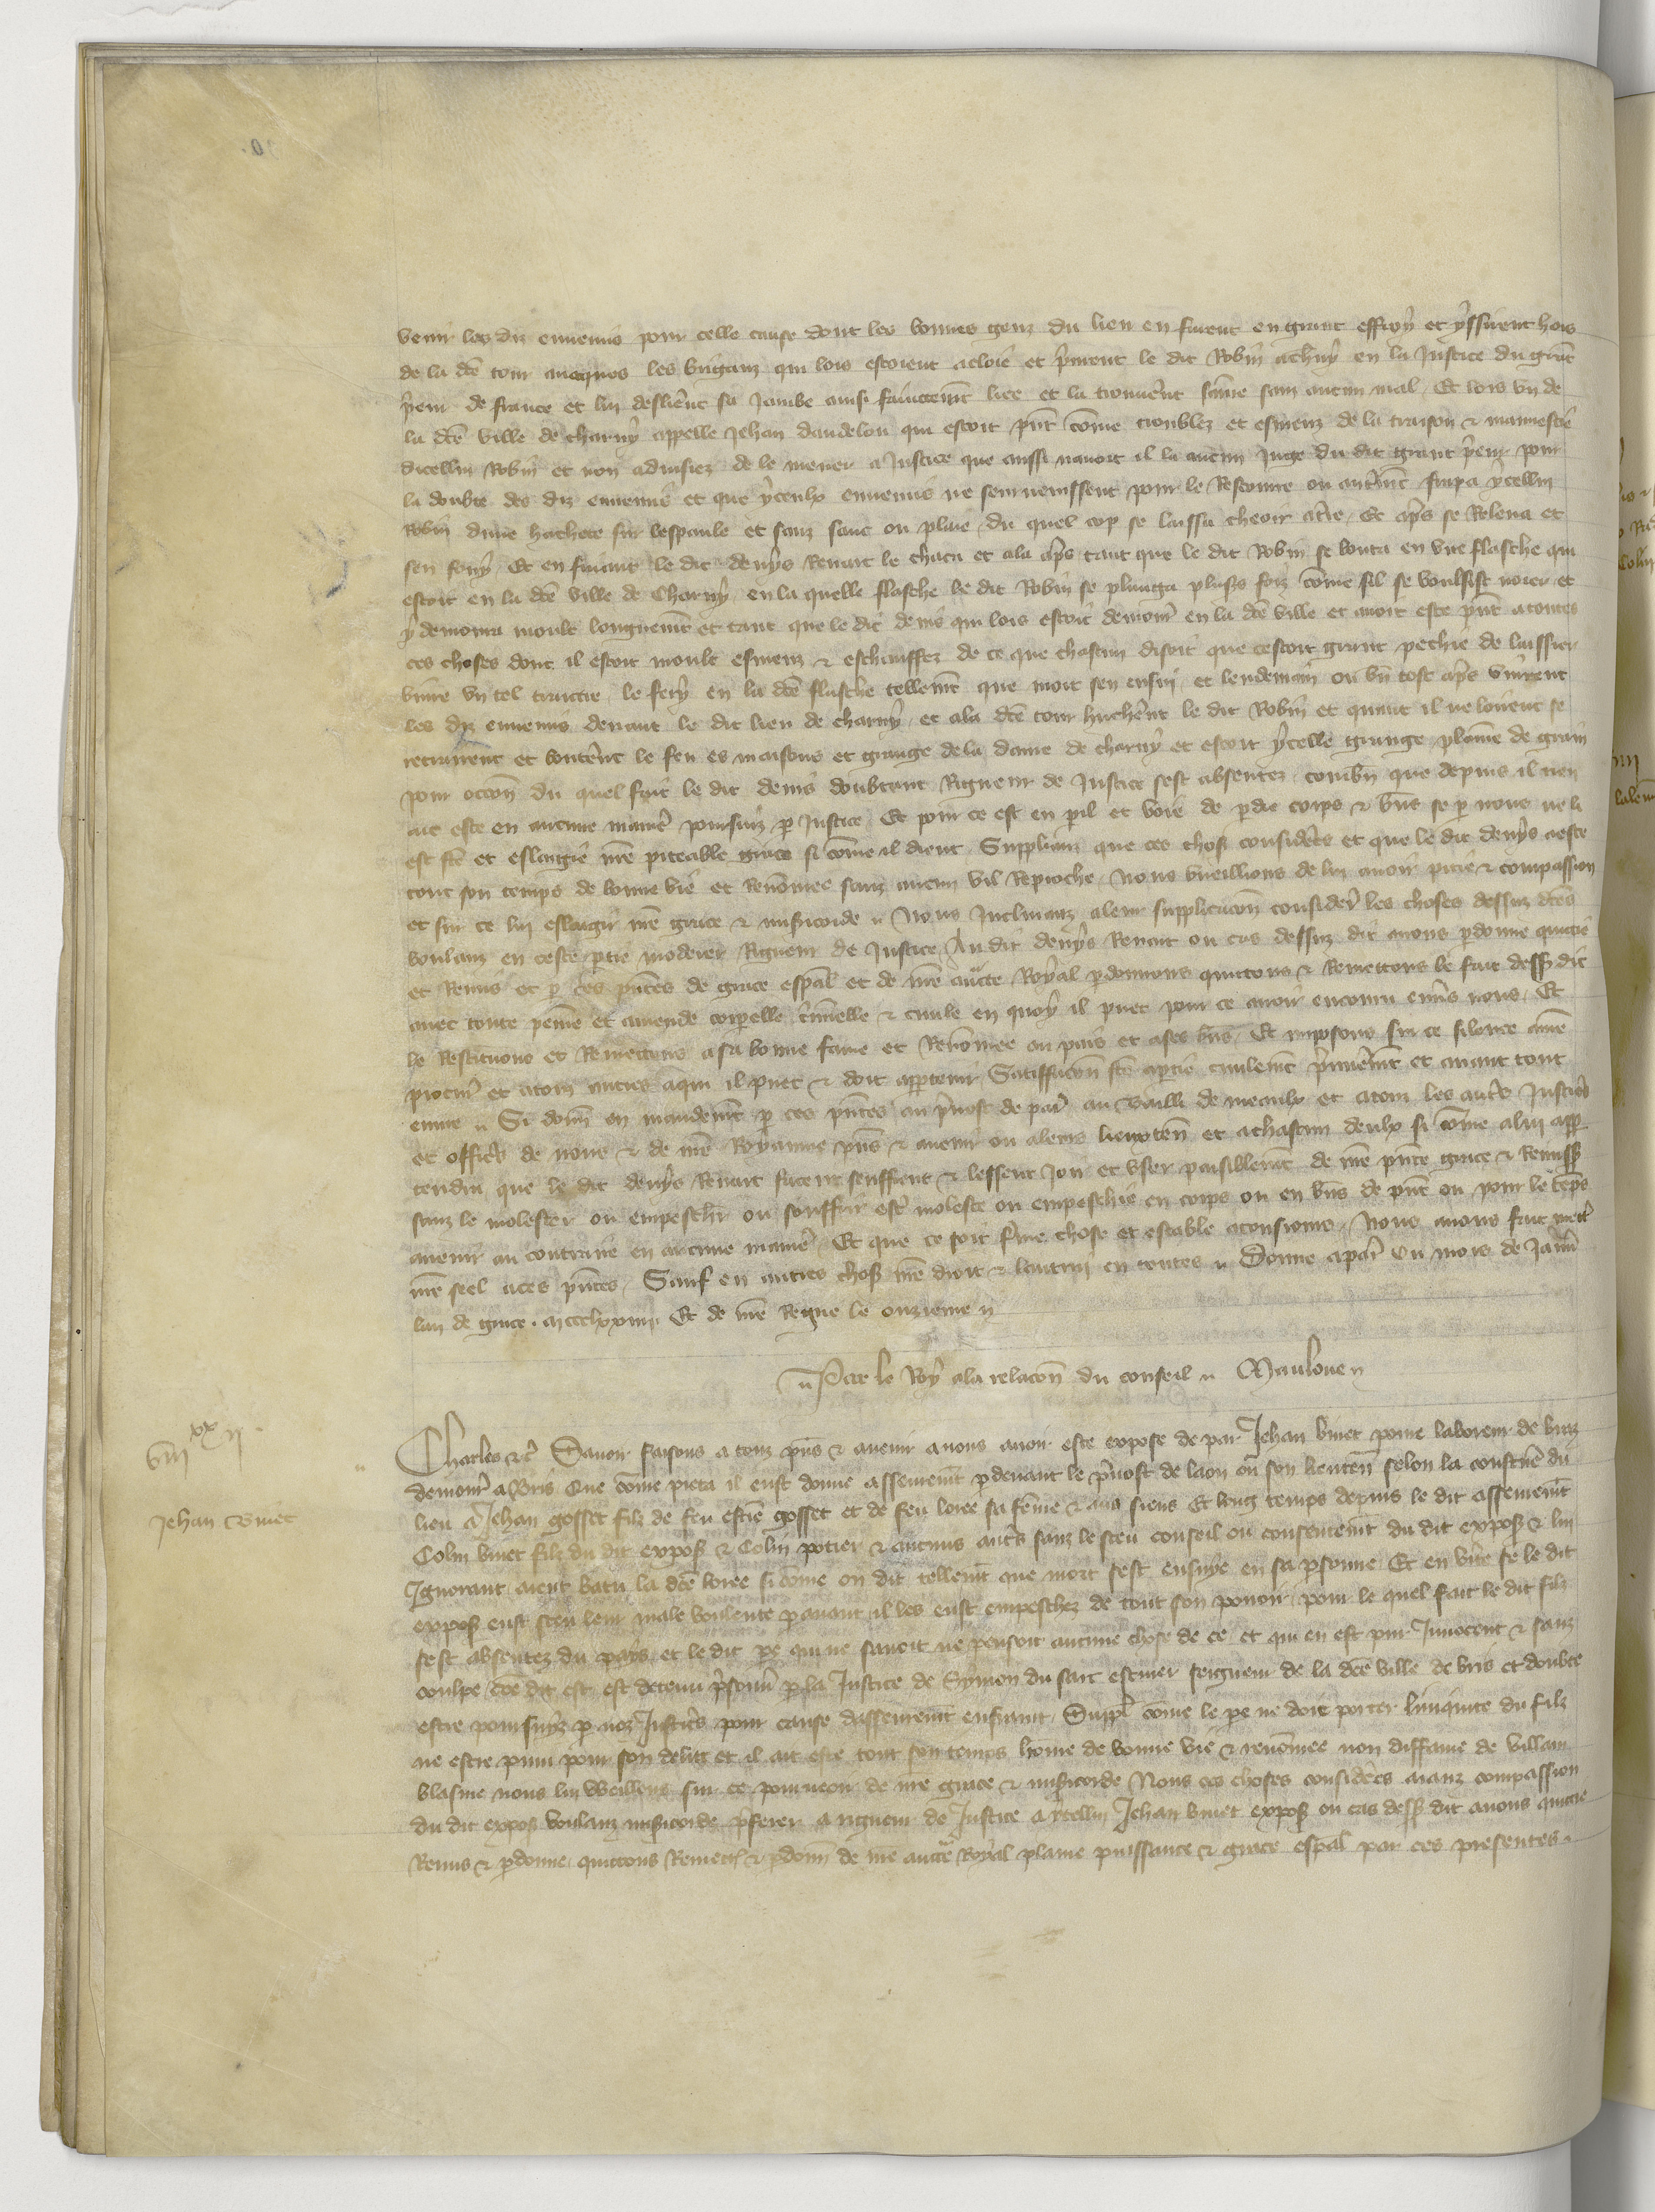 venir les diz ennemis pour celle cause dont les bonnes genz du lieu en furent en grant effroy et yssirent hors
de la dce tour auecques les brigans qui lors estoient et prinrent le dit Robin achiny en la Justice du grat
prieur de france et lui deslierent sa Jambe ainsi faintemt liee et la trouuerent sainne sanz aucun mal. Et lors vn de
la dce ville de charny appelle Jehan daudelou qui estoit pnt come troublez et esmeuz de la traison & mauuestie
dicellui Robin et non aduisiez de le mener a Justice que aussi nauoit il la aucun Juge du dit grant prieur pour
la doubte des diz ennemis et que yceulx ennemis ne seuruenissent pour le Rescourre ou autremt frapa ycellui
Robin dune hachete sur lespaule et sanz sanc ou plaie du quel cop se laissa cheoir a tre. Et aps se Releua et
sen fouy Et en fuiant le dit denys Renart le chaca et ala aps tant que le dit Robin se bouta en vne flasche qui
estoit en la dce ville de Charny en la quelle flasche le dit Robin se plunga plusrs foiz come sil se voulsist noier et
y demoura moult longuemt et tant que le dit denis qui lors estoit demour en la dce ville et auoit este pnt a toutes
ces choses dont il estoit moult esmeuz & eschauffez de ce que chascun disoit que cestoit grant pechie de laissier
viure vn tel traictre le fery en la dce flasche tellemt que mort sen ensui et lendemain ou bn tost aps vinrent
les diz ennemis deuant le dit lieu de charny et a la dce tour hucherent le dit Robin et quant il ne lorent se
retrairent et bouterent le feu es maisons et grange de la dame de charny et estoit ycelle grange plaine de grain
pour occon du quel fait le dit denis doubtant Rigueur de Justice sest absentez combn que depuis il nen
ait este en aucune manie poursuiz p Justice Et pour ce est en pil et voie de pdre corps & bns se p nous ne li
est fte et eslargie nre piteable grace si come il dient Supplianz que ces choses considerees et que le dit denys a este
tout son temps de bonne vie et Renomee sanz aucun vil Reproche Nous vueillions de lui auoir pitie & compassion
et sur ce lui eslargir nre grace & misericorde Nous Inclinanz a leur supplicacon consider les choses dessuz dces
voulanz en ceste ptie moderer Rigueur de Justice Au dit denys Renart ou cas dessuz dit auons pdonne quictie
et Remis et p ces pntes de grace espal et de nre aucte Royal pdonnons quittons & Remettons le fait dess dit
auec toute peine et amende corpelle criminelle & ciuile en quoy il puet pour ce auoir encouru enuers nous Et
le Restituons et Remettons a sa bonne fame et Renomee au pais et a ses bns Et imposons sur ce silence a nre
procur et a touz autres a qui il puet & doit appartenir Satiffacon fte a ptie ciuilemt premieremt et auant tout
euure Si donn en mandemt p ces pntes au preuost de par au Bailli de meaulx et a touz les autrs Justiciers
et officiers de nous & de nre Royaume pns & auenir ou a leurs lieuxten et a chascun deulx si come a lui app
tendra que le dit denys Renart facent seuffrent & lessent Joir et vser paisiblemt de nre pnte grace & Remiss
sanz le molester ou empescher ou souffrir estre moleste ou empeschie en corps ou en bns de pnt ou pour le teps
auenir au contraire en aucune manie Et que ce soit ferme chose et estable a tousiours Nous auons fait mettre
nre seel a ces pntes Sauf en autres chos nre droit & lautrui en toutes Donne a par Ou mois de Januier
lan de grace mccclxxiiii Et de nre Regne le onzieme
Par le Roy a la relacon du conseil Mauloue
viiixxii
Jehan Briet
Charles &c Sauoir faisons a touz pns & auenir a nous auoir este expose de par Jehan briet poure laboreur de braz
demour a Bris Que come pieca il eust donne asseuremt pdeuant le preuost de laon ou son lieuten selon la coustume du
lieu a Jehan gosset filz de feu estiene gosset et de feu loree sa feme & aus siens Et long temps depuis le dit asseuremt
Colin briet filz du dit expos & Colin potier & aucuns autrs sanz le sceu conseil ou consentemt du dit expos & lui
Ignorant aient batu la dce loree si come on dit tellemt que mort sest ensuye en sa psonne Et en verite se le dit
expos eust sceu leur male voulente pauant il les eust empeschez de tout son pouoir pour le quel fait le dit filz
sest absentez du pays et le dit pe qui ne sauoit ne pensoit aucune chose de ce et qui en est pur Innocent & sanz
coulpe coe dit est est detenu prisonn p la Justice de Symon du sart escuier seigneur de la dce ville de bris et doubte
estre poursuyz p noz Justiciers pour cause dasseuremt enfraint Suppl come le pe ne doie porter liniquite du filz
ne estre puni pour son delict et il ait este tout son temps home de bonne vie & renomee non diffame de villain
blasme nous lui weillens sur ce pourueoir de nre grace & misicorde Nous ces choses considerees aianz compassion
du dit expos voulanz misicorde preferer a rigueur de Justice a ycellui Jehan briet expos ou cas dess dit auons quictie
Remis & pdonne quittons Remett & pdonn de nre aucte Royal plaine puissance & grace espal par ces presentes